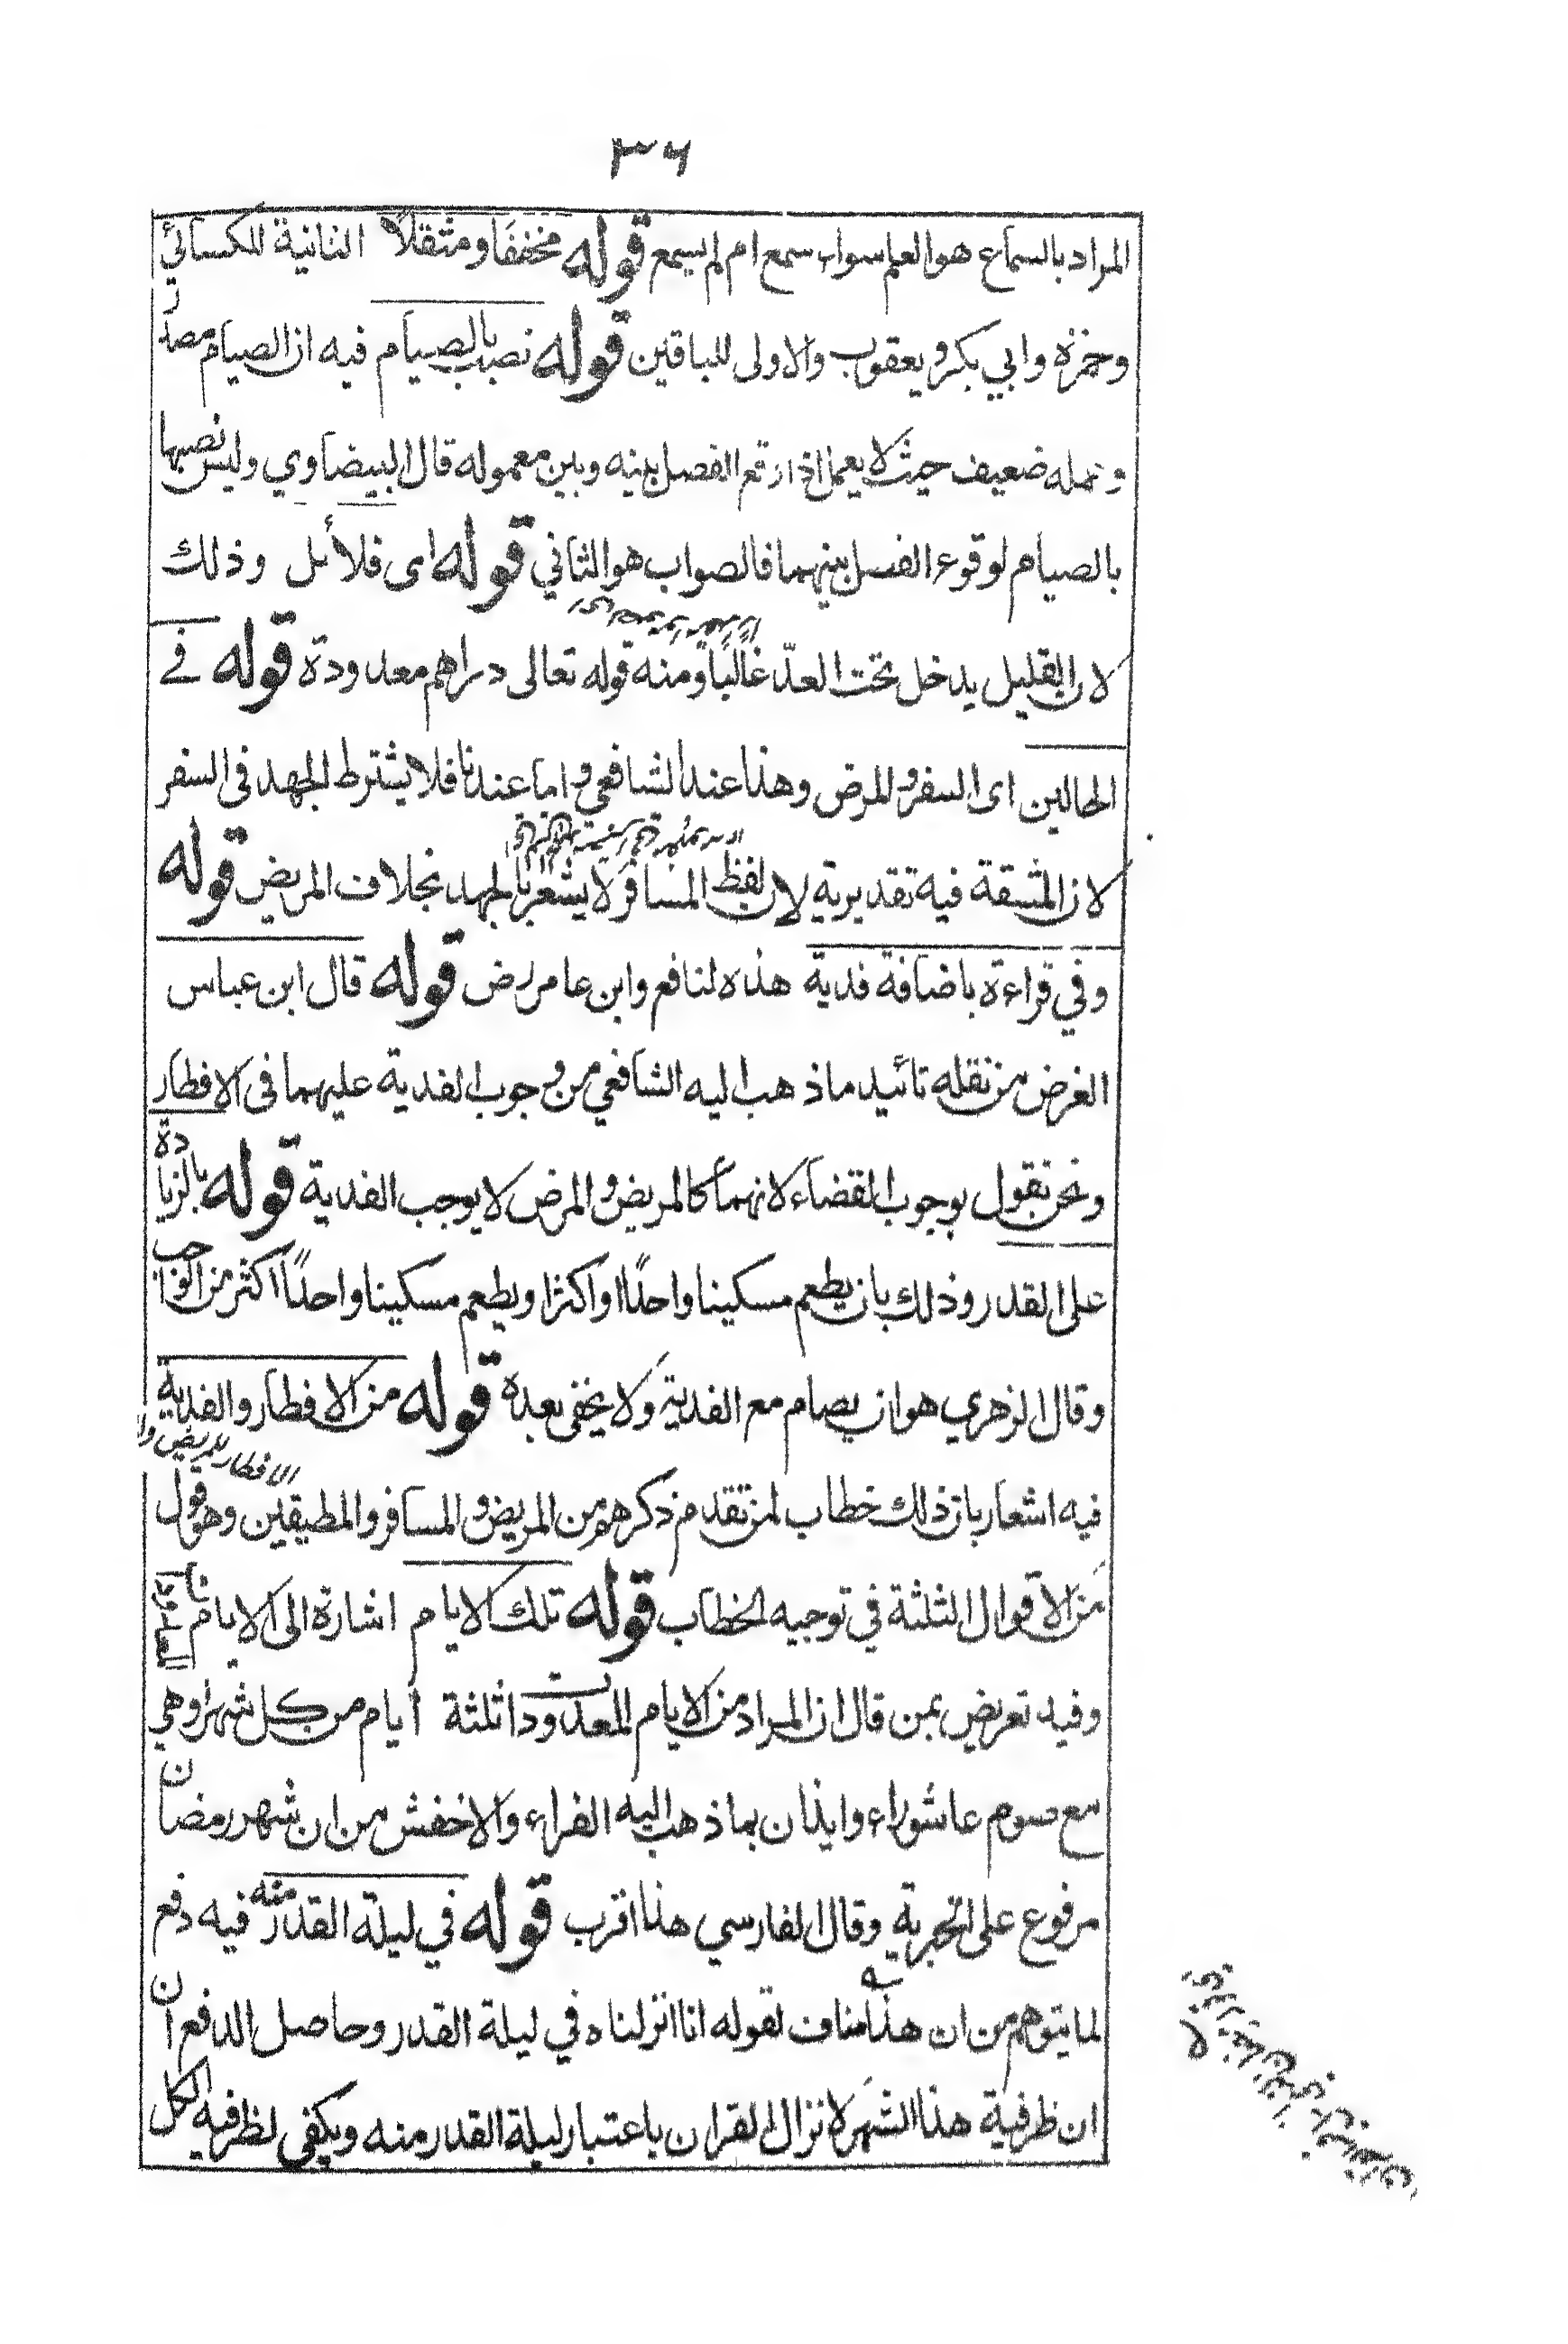 ٣٦
المراد بالسماع هو العلم سواء سمع ام لم يسمع قوله مخففا ومثقلاً الثانية للكسائي
وحمزة وابي بكر ويعقوب والاولى للباقين قوله نصب بالصيام فيه ان الصيام مصدر
وعمله ضعيف حيث لا يعمل اذا رقع الفصل بينه وبين معموله قال البيضاوي وليس نصبها
بالصيام لوقوع الفصل بينهما فالصواب هو الثاني قوله اى قلائل وذلك
لان القليل يدخل تحت العدّ غالبًا ومنه قوله تعالى دراهم معدودة قوله في
الحالين اى السفر والمرض وهذا عند الشافعي واما عندنا فلا يشترط الجهد في السفر
لان المشقة فيه تقديرية لان لفظ المسافر لا يشعر بالجهد بخلاف المريض قوله
وفي قراءة باضافة فدية هذه لنافع وابن عامر رض قوله قال ابن عباس
الغرض من نقله تائيد ما ذهب اليه الشافعي من وجوب الفدية عليهما في الافطار
ونحن نقول بوجوب القضاء لانهما كالمريض والمرض لا يوجب الفدية قوله بالزيادة
على القدر وذلك بان يطعم مسكينا واحدًا او اكثر او يطعم مسكينا واحدًا اكثر من الواجب
وقال الزهري هو ان يصام مع الفدية ولا يخفى بعده قوله من الافطار والفدية
فيه اشعار بان ذلك خطاب لمن تقدم ذكرهم من المريض والمسافر والمطيقين وهو قول
من الاقوال الثلثة في توجيه الخطاب قوله تلك الايام اشارة الى الايام
وفيه تعريض بمن قال ان المراد من الايام المعدودات ثلثة أيام من كل شهر وهي
مع صوم عاشوراء وايذان بما ذهب اليه الفراء والاخفش من ان شهر رمضان
مرفوع على الخبرية وقال الفارسي هذا اقرب قوله في ليلة القدر منه فيه دفع
لما يتوهم من ان هذا مناف لقوله انا انزلناه في ليلة القدر وحاصل الدفع ان
ان ظرفية هذا الشهر لانزال القران باعتبار ليلة القدر منه ويكفي لظرفيه الكل